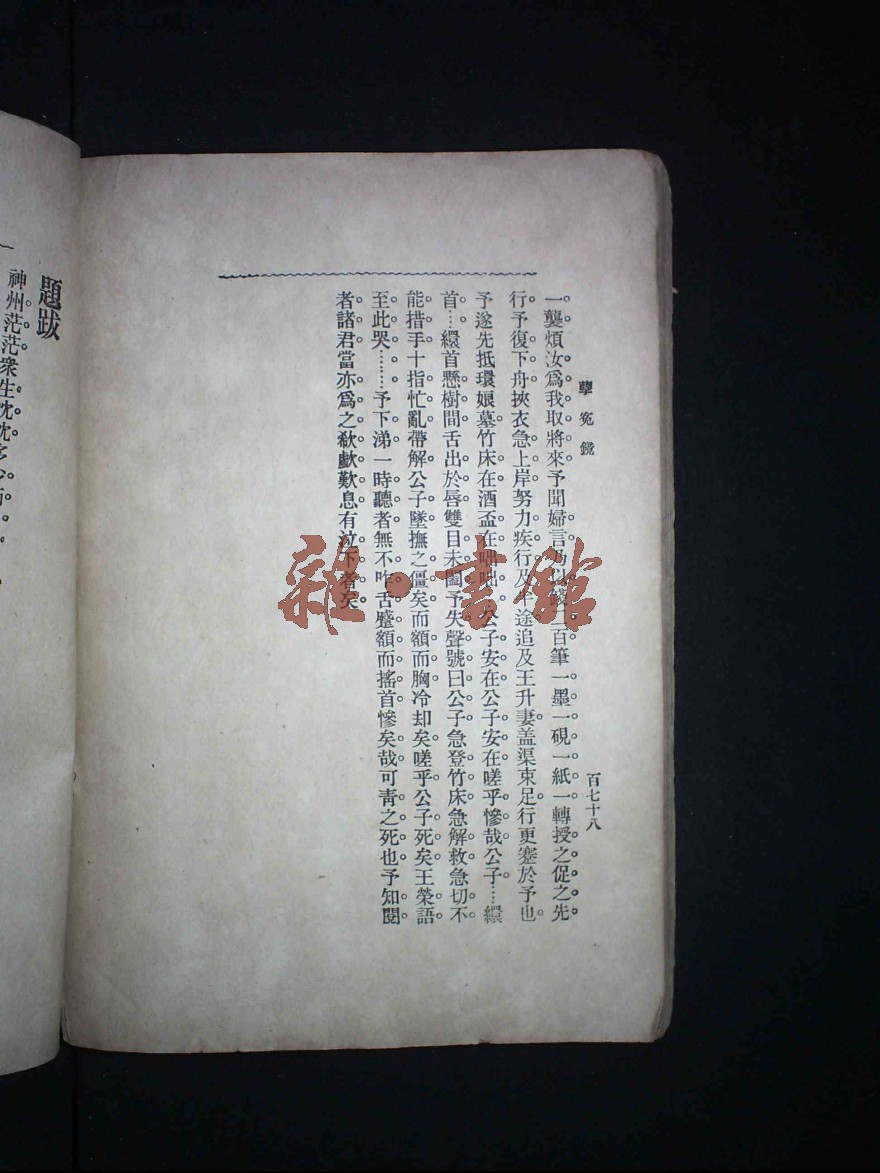 孽冤鏡
百七十八
一襲煩汝爲我取將來予聞婦言乃以錢二百筆一墨一硯一紙一轉授之促之先
行予復下舟挾衣急上岸努力疾行及半途追及王升妻盖渠束足行更蹇於予也
予遂先抵環娘墓竹床在酒盃在咄咄公子安在公子安在嗟乎慘哉公子…繯
首…繯首懸樹間舌出於唇雙目未闔予失聲號曰公子急登竹床急解救急切不
能措手十指忙亂帶解公子墜撫之僵矣而額而胸冷却矣嗟乎公子死矣王榮語
至此哭………予下涕一時聽者無不咋舌蹙額而搖首慘矣哉可青之死也予知閱
者諸君當亦爲之欷歔歎息有泣下者矣
題跋
神州茫茫衆生沈沈
雜·書館